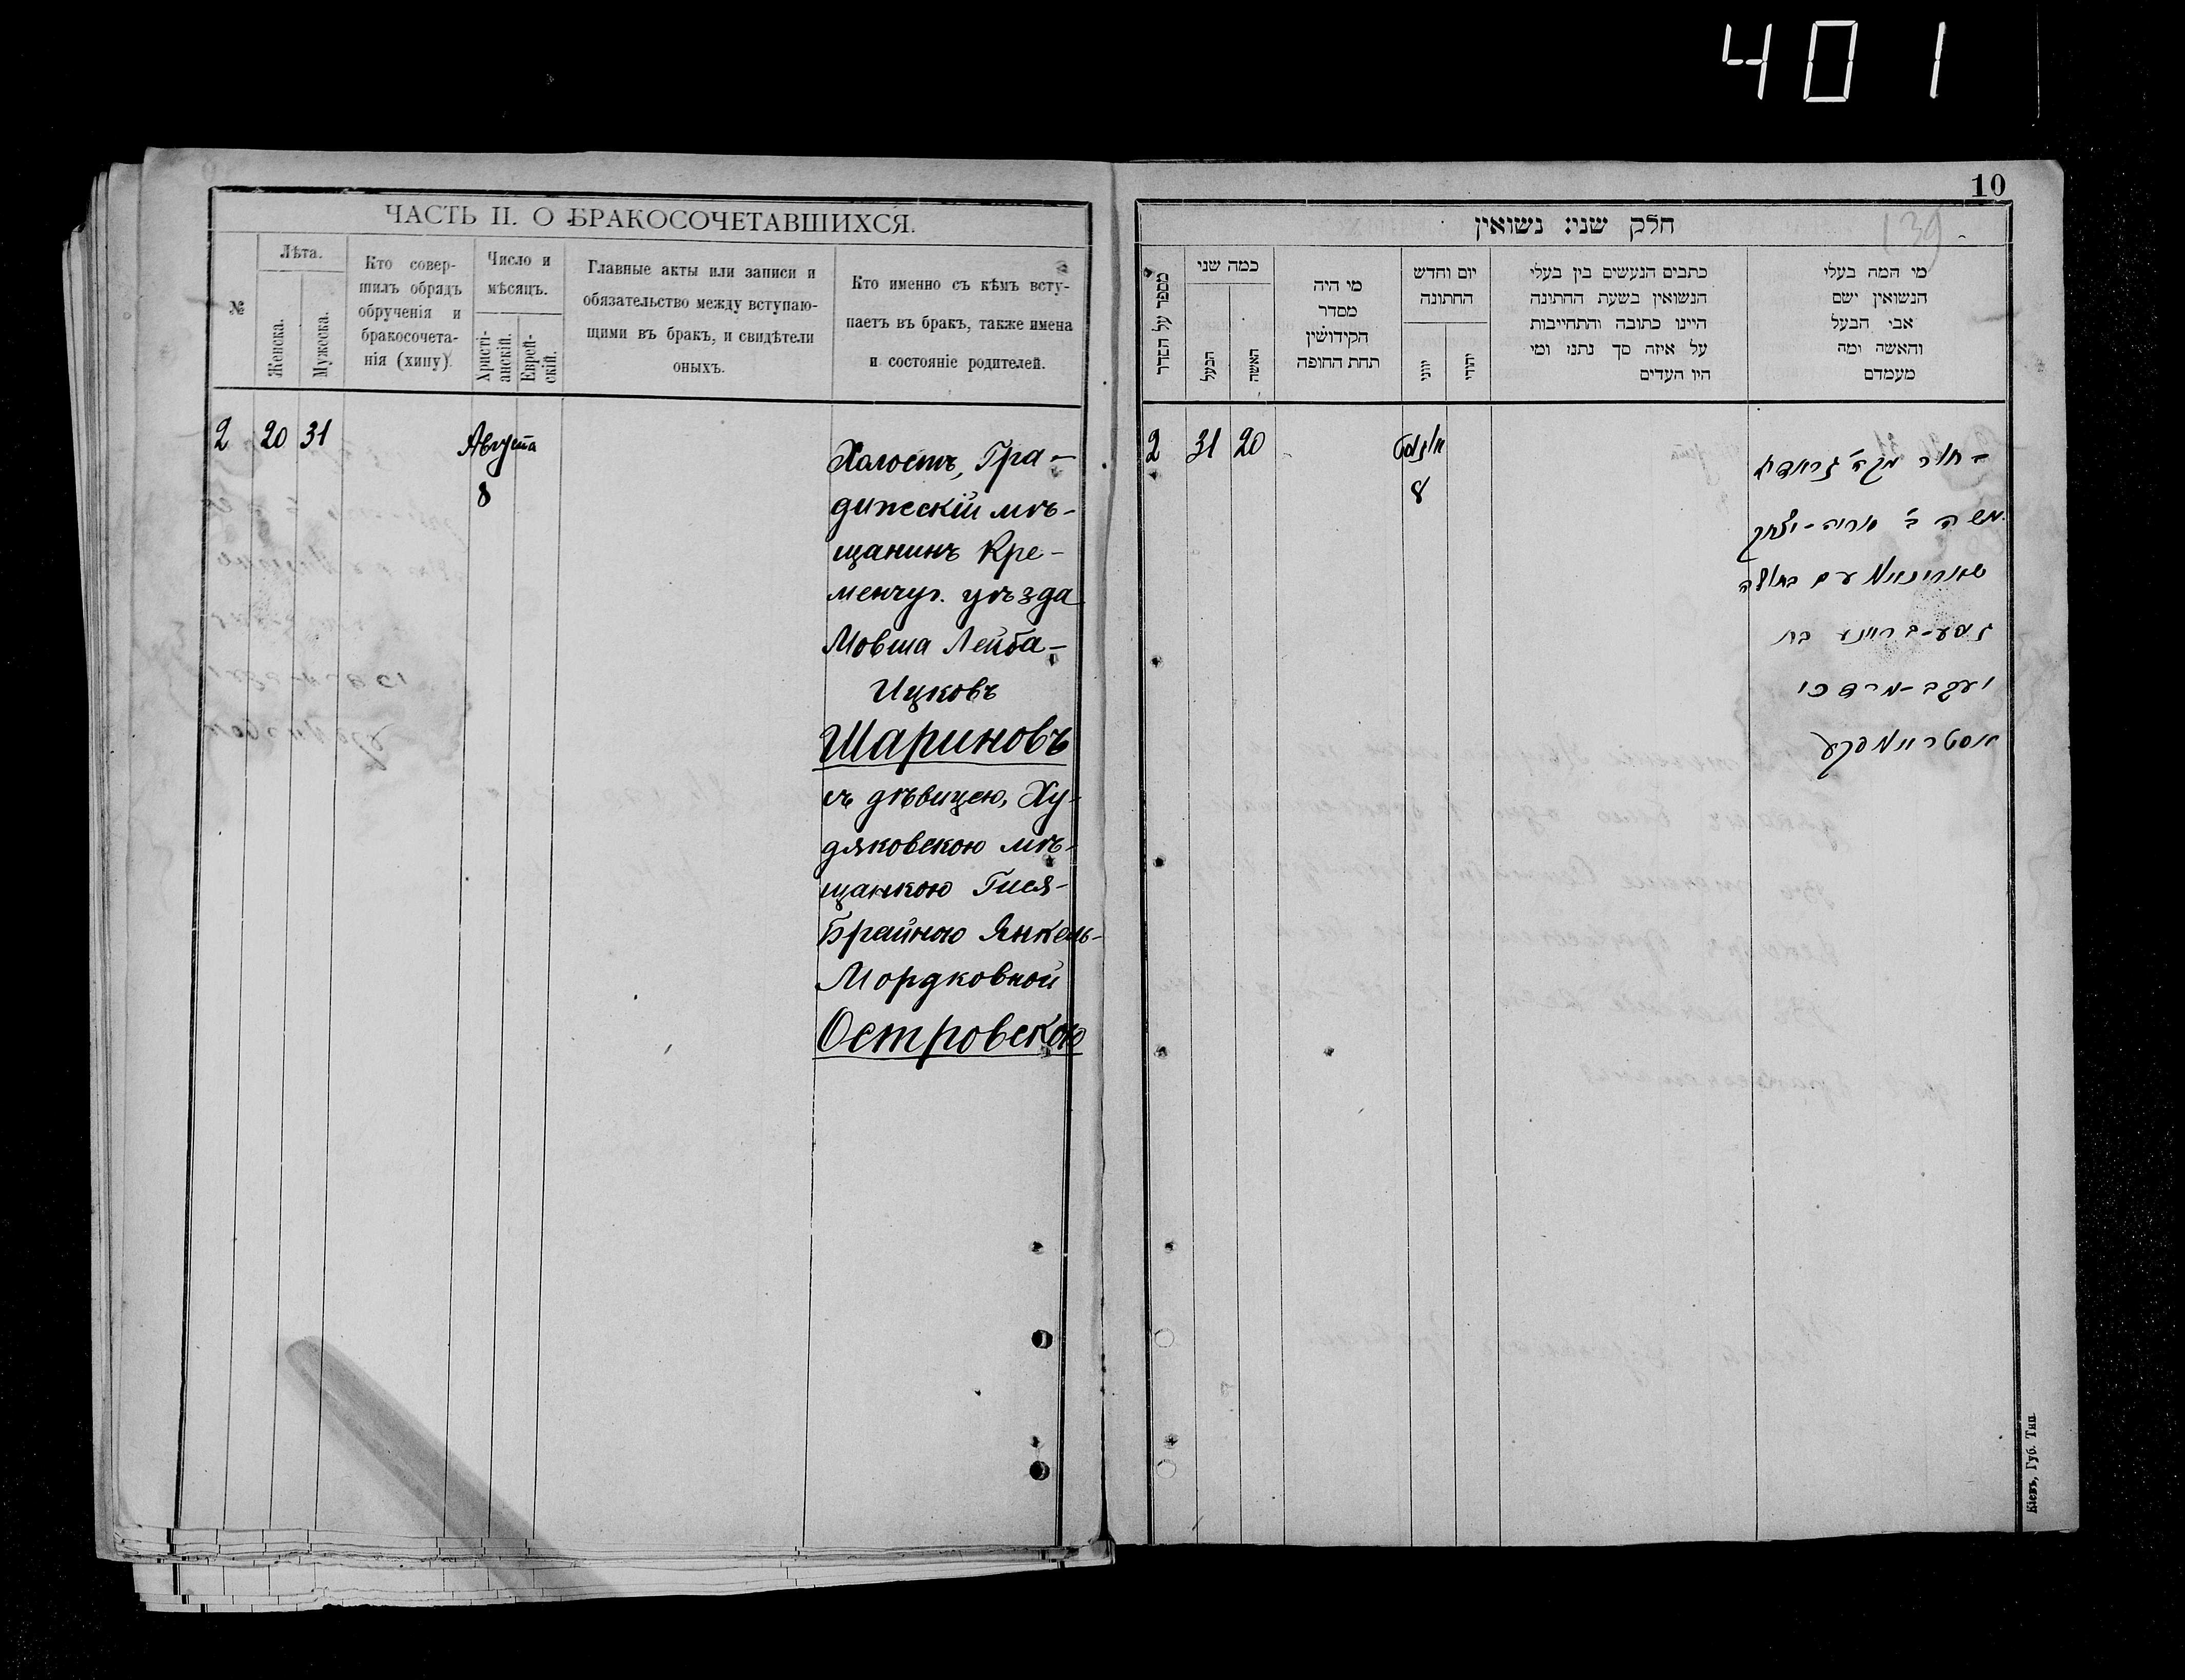 401
ЧАСТЬ II. О БРАКОСОЧЕТАВШИХСЯ.
№
Лѣта.
Женска.
Мужеска.
Кто совер-
шилъ обрядъ
обрученія и
бракосочета-
нія (хипу).
Число и
мѣсяцъ.
Христі-
анскій.
Еврей-
скій.
Главные акты или записи и
обязательство между вступаю-
щими въ бракъ, и свидѣтели
оныхъ.
Кто именно съ кѣмъ всту-
паетъ въ бракъ, также имена
и состояніе родителей.
2 20 31
Августа
8
Холостъ, Гра-
дижскій мѣ-
щанинъ Кре-
менчуг. уѣзда
Мовша Лейба-
Ицковъ
Шариновъ
съ дѣвицею, Ху-
дяковскою мѣ-
щанкою Гися-
Брайною Янкель-
Мордковной
Островскою
10
139
חלק שני: נשואין
מספר על הסדר
כמה שני
הבעל
האשה
מי היה
מסדר
הקידושין
תחת החופה
יום וחדש
החתונה
יווני
יהודי
כתבים הנעשים בין בעלי
הנשואין בשעת החתונה
היינו כתובה והתחייבות
על איזה סך נתנו ומי
היו העדים
מי המה בעלי
הנשואין ושם
אבי הבעל
והאשה ומה
מעמדם
2 31 20
אוגוסט
8
משה ב׳ אריה-יצחק
שארינאוו עם בתולה
גיסע-בריינע בת
יעקב-מרדכי
אסטראווסקע
Кіевъ, Губ. Тип.